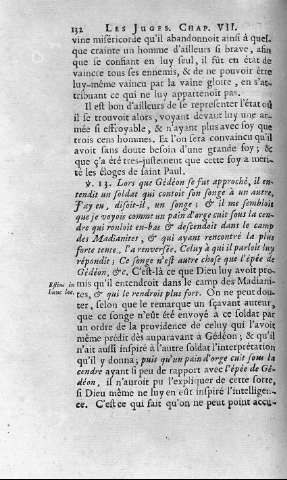 132 LES JUGES. CHAP. VII.
vine misericorde qu'il abandonnoit ainsi à quel-
que crainte un homme d'ailleurs si brave, afin
que se confiant en luy seul, il fût en état de
vaincre tous ses ennemis, & de ne pouvoir être
luy-même vaincu par la vaine gloire, en s'at-
tribuant ce qui ne luy appartenoit pas.
Il est bon d'ailleurs de se representer l'état où
il se trouvoit alors, voyant devant luy une ar-
mée si effroyable, & n'ayant plus avec soy que
trois cens hommes. Et l'on sera convaincu qu'il
avoit sans doute besoin d'une grande foy; & 
que ç'a été tres-justement que cette foy a meri-
té les éloges de saint Paul.
℣. 13. Lors que Gédéon se fut approché, il en-
tendit un soldat qui contoit son songe à un autre,
J'ay eu, disoit-il, un songe; & il me sembloit
que je voyois comme un pain d'orge cuit sous la cen-
dre qui rouloit en-bas & descendoit dans le camp
des Madianites, & qui ayant rencontré la plus
forte tente, l'a renversée. Celuy à qui il parloit luy
répondit; Ce songe n'est autre chose que l'épée de
Gédéon, &c. C'est-là ce que Dieu luy avoit pro-
mis qu'il entendroit dans le camp des Madiani-
tes, & qui le rendroit plus fort. On ne peut dou-
ter, selon que le remarque un sçavant auteur,
que ce songe n'eût été envoyé à ce soldat par
un ordre de la providence de celuy qui l'avoit
même prédit dés auparavant à Gédéon; & qu'il
n'ait aussi inspiré à l'autre soldat l'interprétation
qu'il y donna; puis qu'un pain d'orge cuit sous la
cendre ayant si peu de rapport avec l'épée de Gé-
déon, il n'auroit pu l'expliquer de cette sorte,
si Dieu même ne luy en eût inspiré l'intelligen-
ce. C'est ce qui fait qu'on ne peut point accu-
hunc loc.